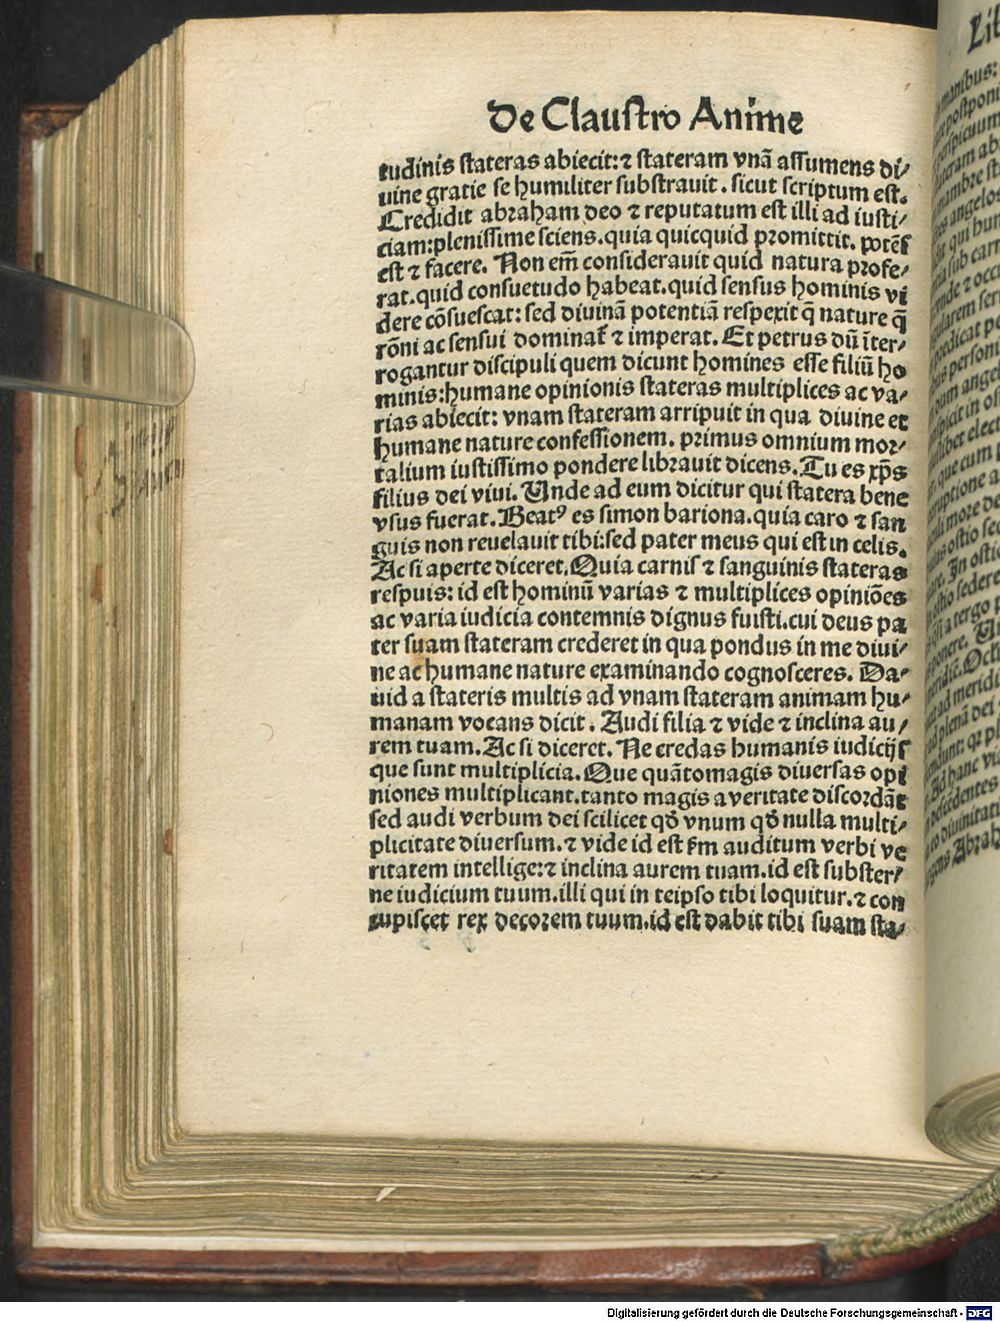 De Claustro Anime
tudinis stateras abiecit:⁊ stateram vnā assumens di/
uine gratie se humiliter substrauit. sicut scriptum est.
Credidit abraham deo ⁊ reputatum est illi ad iusti/
ciam:plenissime sciens.quia quicquid promittit. potēs
est ⁊ facere. Non em̄ considerauit quid natura profe/
rat.quid consuetudo habeat.quid sensus hominis vi
dere cōsuescat: sed diuinā potentiā respexit q̄ nature q̄
rōni ac sensui dominat̄ ⁊ imperat. Et petrus dū īter/
rogantur discipuli quem dicunt homines esse filiū ho
minis:humane opinionis stateras multiplices ac va/
rias abiecit: vnam stateram arripuit in qua diuine et
humane nature confessionem. primus omnium mor/
talium iustissimo pondere librauit dicens.Tu es xp̄s
filius dei viui. Unde ad eum dicitur qui statera bene
vsus fuerat.Beatꝰ es simon bariona.quia caro ⁊ san
guis non reuelauit tibi:sed pater meus qui est in celis.
Ac si aperte diceret.Quia carnis ⁊ sanguinis stateras
respuis: id est hominū varias ⁊ multiplices opiniōes
ac varia iudicia contemnis dignus fuisti.cui deus pa
ter suam stateram crederet in qua pondus in me diui/
ne ac humane nature examinando cognosceres. Da/
uid a stateris multis ad vnam stateram animam hu/
manam vocans dicit. Audi filia ⁊ vide ⁊ inclina au/
rem tuam.Ac si diceret. Ne credas humanis iudicijs
que sunt multiplicia. Que quātomagis diuersas opi
niones multiplicant.tanto magis a veritate discordāt
sed audi verbum dei scilicet qd̄ vnum qd̄ nulla multi/
plicitate diuersum.⁊ vide id est fm̄ auditum verbi ve
ritatem intellige:⁊ inclina aurem tuam.id est subster/
ne iudicium tuum.illi qui in teipso tibi loquitur.⁊ con
cupiscet rex decorem tuum.id est dabit tibi suam sta/
Digitalisierung gefördert durch die Deutsche Forschungsgemeinschaft - DFG